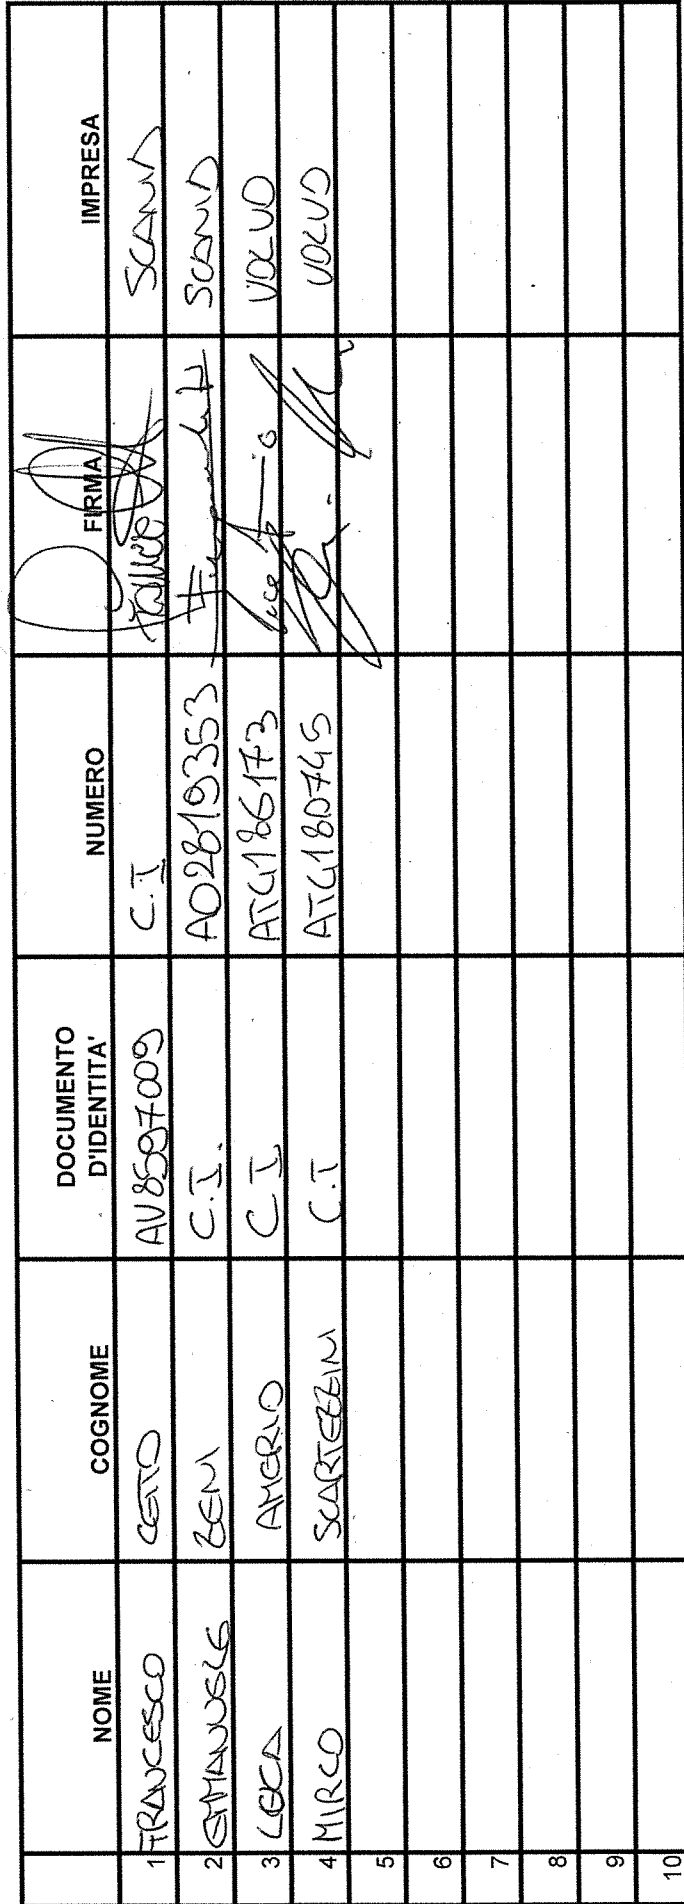 NOME COGNOME DOCUMENTO D'IDENTITA' NUMERO FIRMA IMPRESA
1 FRANCESCO CETTO AV8597009 C.I SCANIA
2 EMMANUELE ZENI C.I. AO2819353 SCANIA
3 LUCA AMERIO C.I AT4186173 VOLVO
4 MIRCO SCARTEZZINI C.I AT4180745 VOLVO
5
6
7
8
9
10